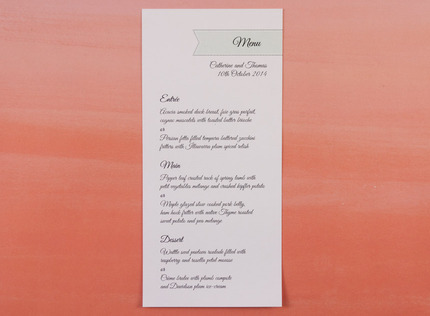 Menu
Catherine and Thomas
10th October 2014
Entrée
Acacia smoked duck breast, foie gras parfait,
cognac muscatels with toasted butter brioche
or
Persian fetta filled tempura battered zucchini
fritters with Illawarra plum spiced relish
Main
Pepper leaf crusted rack of spring lamb with
petit vegetables melange and crushed kipfler potato
or
Maple glazed slow cooked pork belly,
ham hock fritter with native Thyme roasted
sweet potato and pea melange
Dessert
Wattle seed pavlova roulade filled with
raspberry and rosella petal mousse
or
Crème brulee with plum compote
and Davidson plum ice-cream